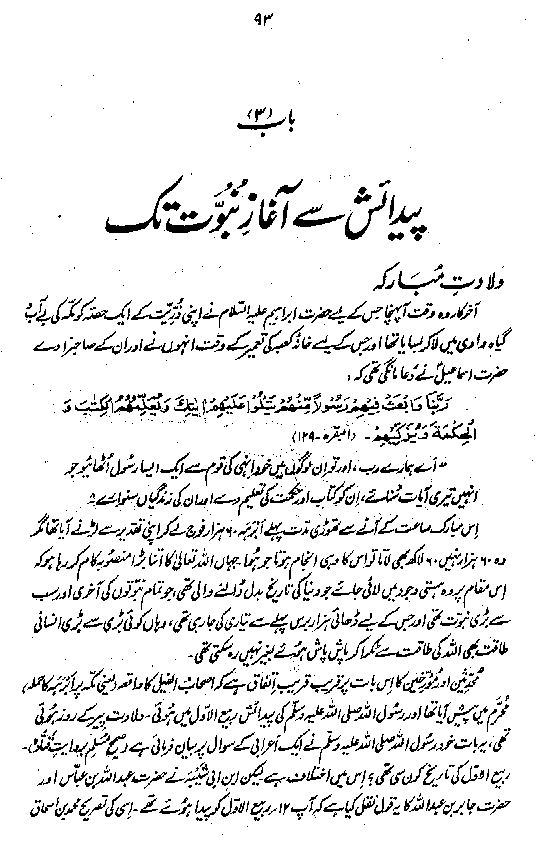 ۹۳
باب (۳)
پیدائش سے آغازِ نبوّت تک
ولادتِ مبارکہ
آخرکار وہ وقت آپہنچا جس کے لیے حضرت ابراہیم علیہ السلام نے اپنی ذُرِّیت کے ایک حصہ کو مکّہ کی بے آب و
گیاہ وادی میں لاکر بسایا تھا اور جس کے لیے خانۂ کعبہ کی تعمیر کے وقت انہوں نے اور ان کے صاحبزادے
حضرت اسماعیلؑ نے دُعا مانگی تھی کہ:
رَبَّنَا وَابْعَثْ فِيْهِمْ رَسُوْلًا مِّنْهُمْ يَتْلُوْا عَلَيْهِمْ اٰيٰتِكَ وَيُعَلِّمُهُمُ الْكِتٰبَ وَ
الْحِكْمَةَ وَيُزَكِّيْهِمْ۔ (البقرہ۔ ۱۲۹)
”اے ہمارے رب، اور تو ان لوگوں میں خود انہی کی قوم سے ایک ایسا رسول اُٹھائیو جو
انہیں تیری آیات سُنائے، ان کو کتاب اور حکمت کی تعلیم دے اور ان کی زندگیاں سنوارے“
اِس مبارک ساعت کے آنے سے تھوڑی مدت پہلے اَبرَہہ ۶۰ ہزار فوج لے کر اپنی تقدیر سے لڑنے آیا تھا مگر
وہ ۶۰ ہزار نہیں ۶۰ لاکھ بھی لاتا تو اس کا وہی انجام ہوتا جو ہوا۔ جہاں اللہ تعالیٰ کا اتنا بڑا منصوبہ کام کر رہا ہو کہ
اِس مقام پر وہ ہستی وجود میں لائی جائے جو دنیا کی تاریخ بدل ڈالنے والی تھی، جو تمام نبوّتوں کی آخری اور سب
سے بڑی نبوت تھی اور جس کے لیے ڈھائی ہزار برس پہلے سے تیاری کی جا رہی تھی، وہاں کوئی بڑی سے بڑی انسانی
طاقت بھی اللہ کی طاقت سے ٹکرا کر پاش پاش ہوئے بغیر نہیں رہ سکتی تھی۔
محدّثین اور مؤرخین کا اِس بات پر قریب قریب اتفاق ہے کہ اصحاب الفیل کا واقعہ (یعنی مکّہ پر اَبرَہہ کا حملہ)
محرّم میں پیش آیا تھا اور رسول اللہ صلی اللہ علیہ وسلّم کی پیدائش ربیع الاوّل میں ہوئی۔ ولادت پیر کے روز ہوئی
تھی، یہ بات خود رسول اللہ صلی اللہ علیہ وسلّم نے ایک اَعرابی کے سوال پر بیان فرمائی ہے (صحیح مُسلِم بروایت قتادہؓ)۔
ربیع الاوّل کی تاریخ کون سی تھی؟ اِس میں اختلاف ہے لیکن ابن ابی شَیبہؒ نے حضرت عبداللہ بن عباسؓ اور
حضرت جابر بن عبداللہؓ کا یہ قول نقل کیا ہے کہ آپ ۱۲۔ ربیع الاوّل کو پیدا ہوئے تھے۔ اِسی کی تصریح محمد بن اسحاق